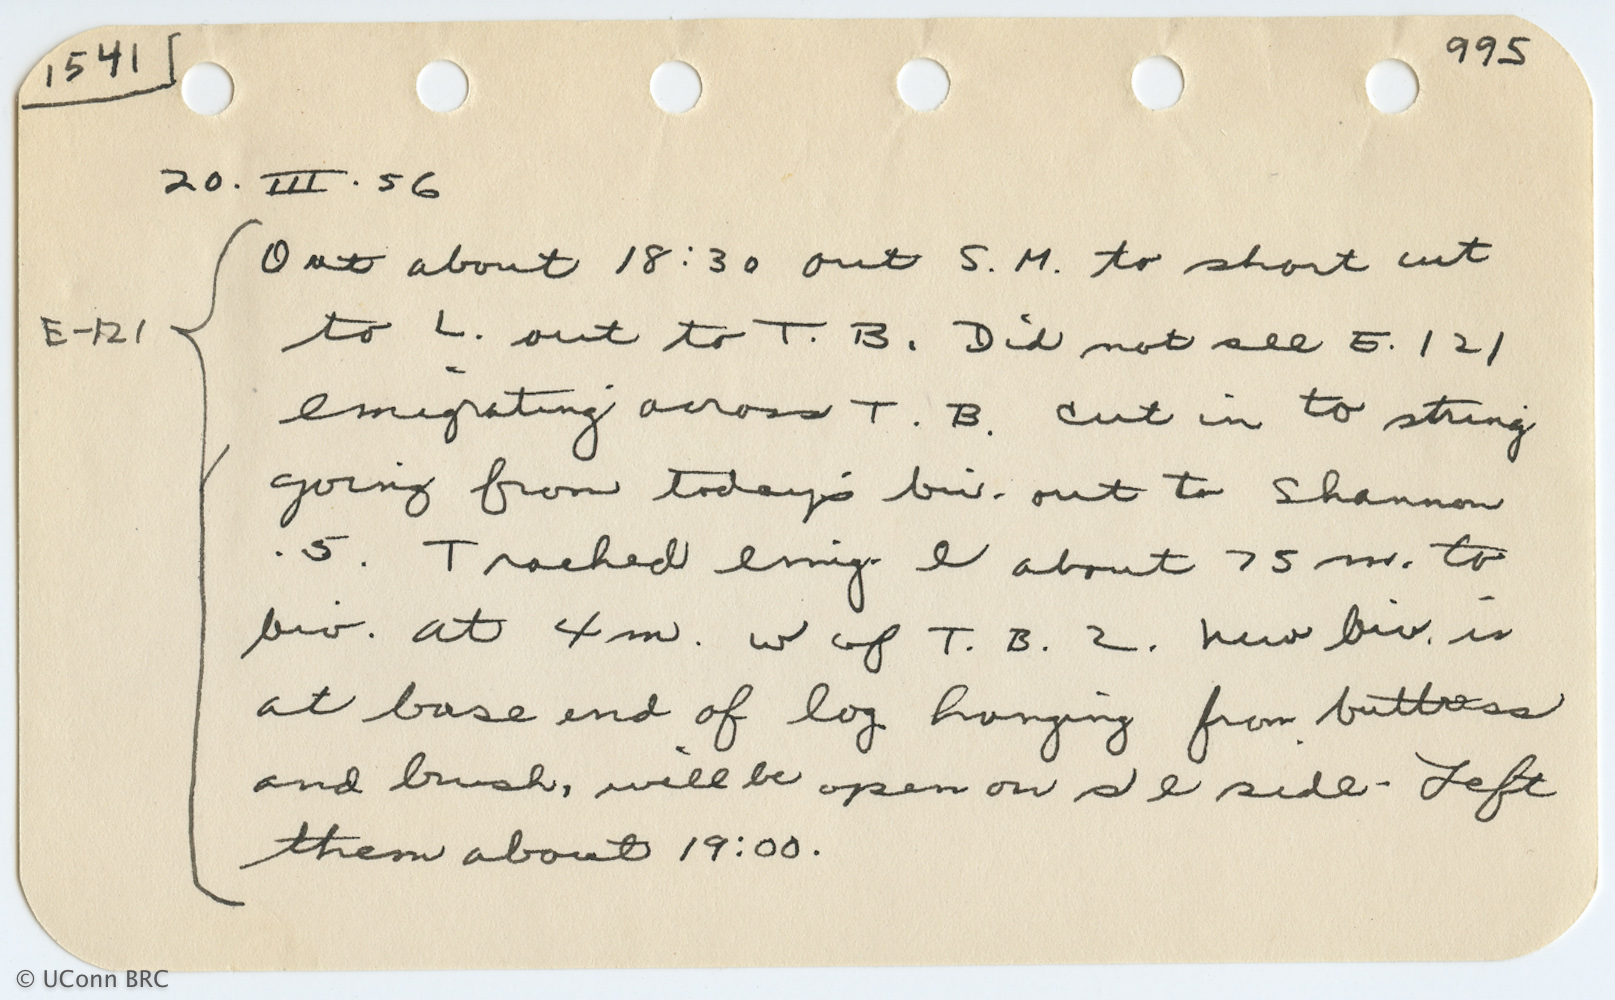 1541
995
20. III. 56
E-121
Out about 18:30 out S. M. to short cut
to L. out to T. B. Did not see E. 121
emigrating across T. B. cut in to string
going from today's biv. out to Shannon
.5. Tracked emig. e about 75 m. to
biv. at 4 m. w of T. B. 2. New biv. is
at base end of log hanging from buttress
and brush, will be open on s e side. Left
them about 19:00.
© UConn BRC